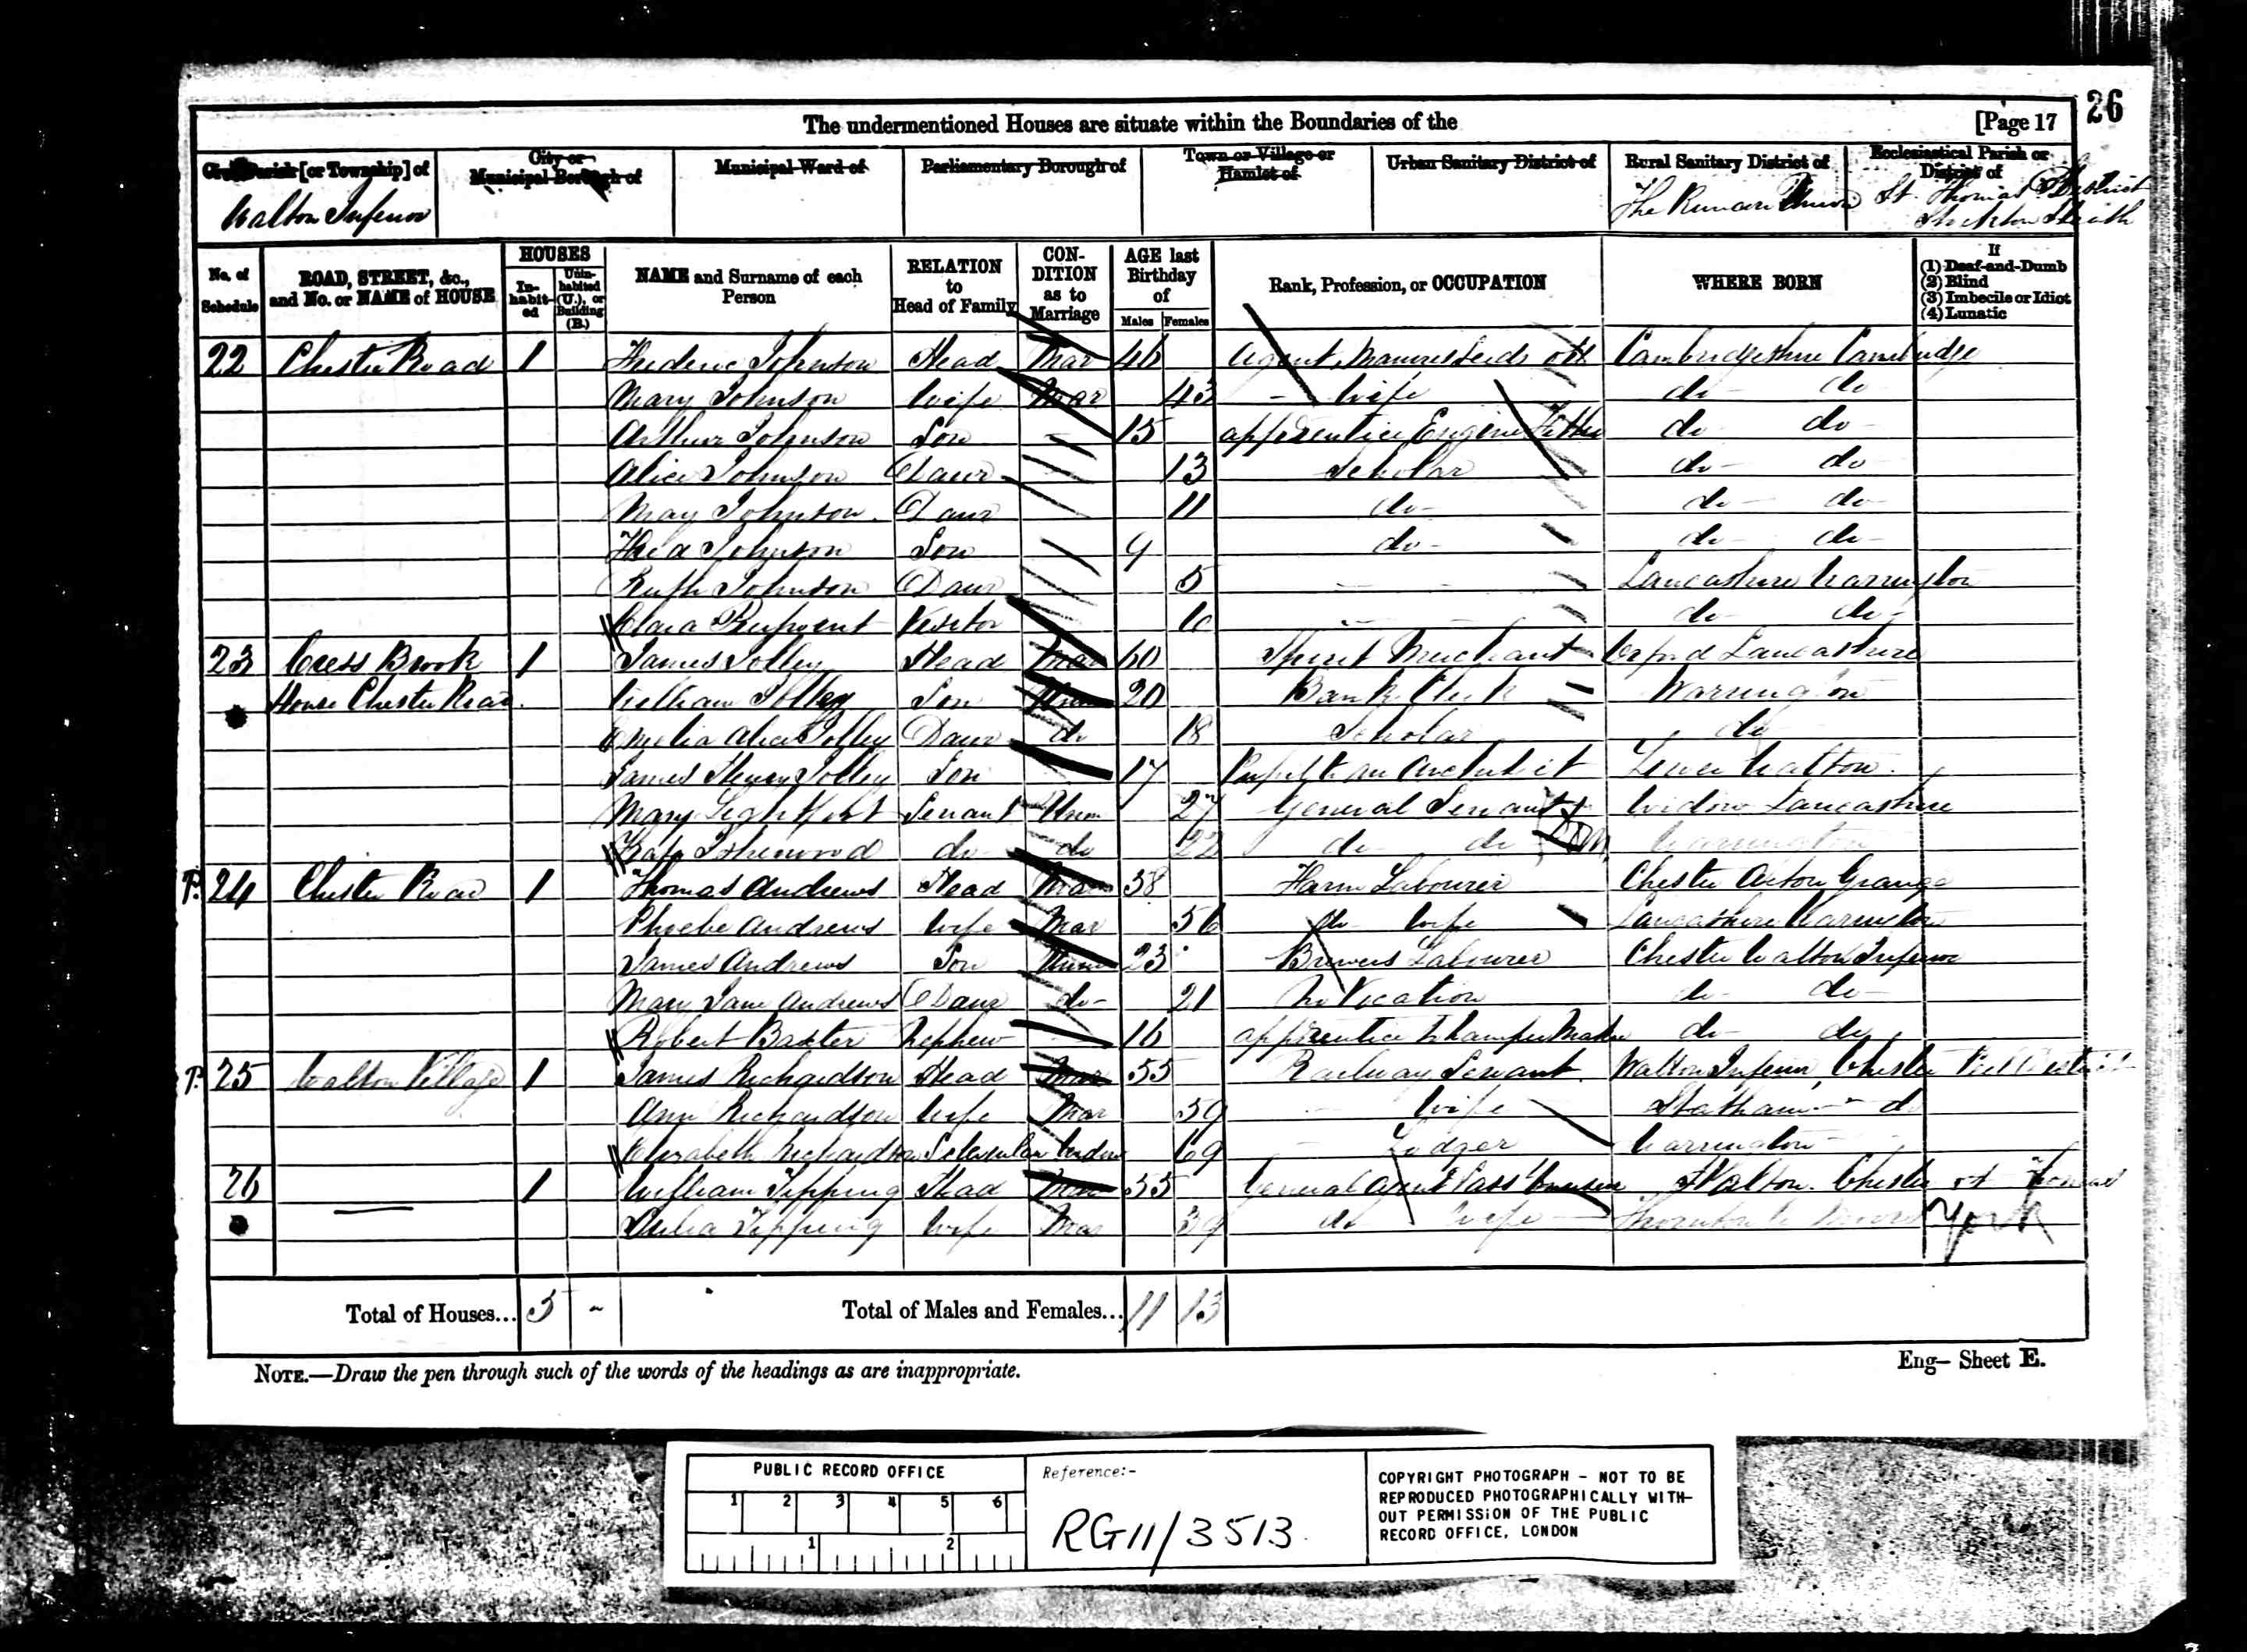 26
The undermentioned Houses are situate within the Boundaries of the
[Page 17
Civil Parish [or Township] of
City or Municipal Borough of
Municipal Ward of
Parliamentary Borough of
Town or Village or Hamlet of
Urban Sanitary District of
Rural Sanitary District of
Ecclesiastical Parish or District of
Walton Inferior
The Runcorn Union
St. Thomas District Stockton Heath
No. of Schedule
ROAD, STREET, &c., and No. or NAME of HOUSE
HOUSES
In-habit-ed
Unin-habited (U.), or Building (B.)
NAME and Surname of each Person
RELATION to Head of Family
CON-DITION as to Marriage
AGE last Birthday of
Males
Females
Rank, Profession, or OCCUPATION
WHERE BORN
If
(1) Deaf-and-Dumb
(2) Blind
(3) Imbecile or Idiot
(4) Lunatic
22 Chester Road 1 Frederic Johnson Head Mar 46 Agent, Manures Seeds Cambridgeshire Cambridge
Mary Johnson Wife Mar 43 - Wife do - do
Arthur Johnson Son - 15 apprentice Engine Fitter do do
Alice Johnson Daur 13 Scholar do - do
May Johnson Daur 11 do - do - do
Fred Johnson Son 9 do - do - do
Ruth Johnson Daur 5 Lancashire Warrington
Clara Visitor do do
23 Cress Brook 1 James Jolley Head Mar 60 Spirit Merchant Orford Lancashire
House Chester Road William Jolley Son Unm 20 Bank Clerk Warrington
Amelia Alice Jolley Daur do 18 Scholar do
James Henry Jolley Son 17 Pupil to an Architect Lower Walton
Mary Lightfoot Servant Unm 27 General Servant Lancashire
Kate Isherwood do do 22 do do Warrington
P. 24 Chester Road 1 Thomas Andrews Head Mar 58 Farm Labourer Chester Acton Grange
Phoebe Andrews Wife Mar 56 do Wife Lancashire Warrington
James Andrews Son Unm 23 Brewers Labourer Chester Walton Inferior
Mary Jane Andrews Daur do - 21 No Vocation do - do -
Robert Baxter Nephew 16 apprentice Hamper Maker do - do
P. 25 Walton Village 1 James Richardson Head Mar 55 Railway Servant Walton Inferior, Chester
Ann Richardson Wife Mar 59 Wife Statham do
Elizabeth Richardson Widow 69 Lodger Warrington
26 1 William Tipping Head Mar 55 General Agent Walton Chester
Julia Tipping Wife Mar 39 do Wife York
Total of Houses... 5 -
Total of Males and Females... 11 13
NOTE.—Draw the pen through such of the words of the headings as are inappropriate.
Eng— Sheet E.
PUBLIC RECORD OFFICE
1 2 3 4 5 6
1 2
Reference:-
RG11/3513
COPYRIGHT PHOTOGRAPH - NOT TO BE
REPRODUCED PHOTOGRAPHICALLY WITH-
OUT PERMISSION OF THE PUBLIC
RECORD OFFICE, LONDON